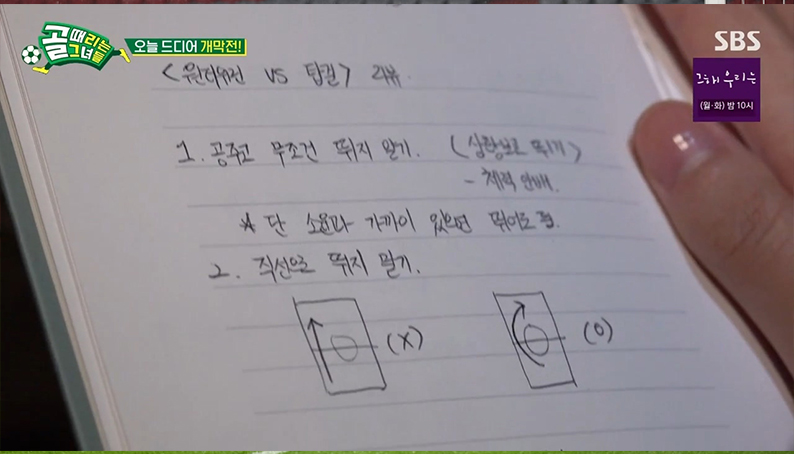 골때리는
그녀들
오늘 드디어 개막전!
SBS
그해 우리는
(월·화) 밤 10시
<원더우먼 VS 탑걸> 리뷰.
1. 공주고 무조건 뛰지 않기. (상황보고 뛰기)
- 체력 안배.
* 단 소윤과 가까이 있으면 뛰어도 됨.
2. 직선으로 뛰지 말기.
(X)
(O)